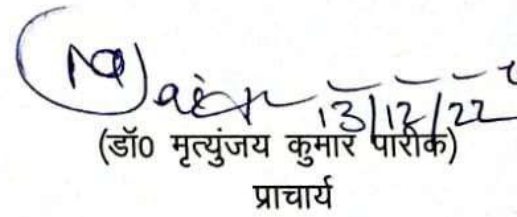 13/12/22
(डॉ0 मृत्युंजय कुमार पारीक)
प्राचार्य